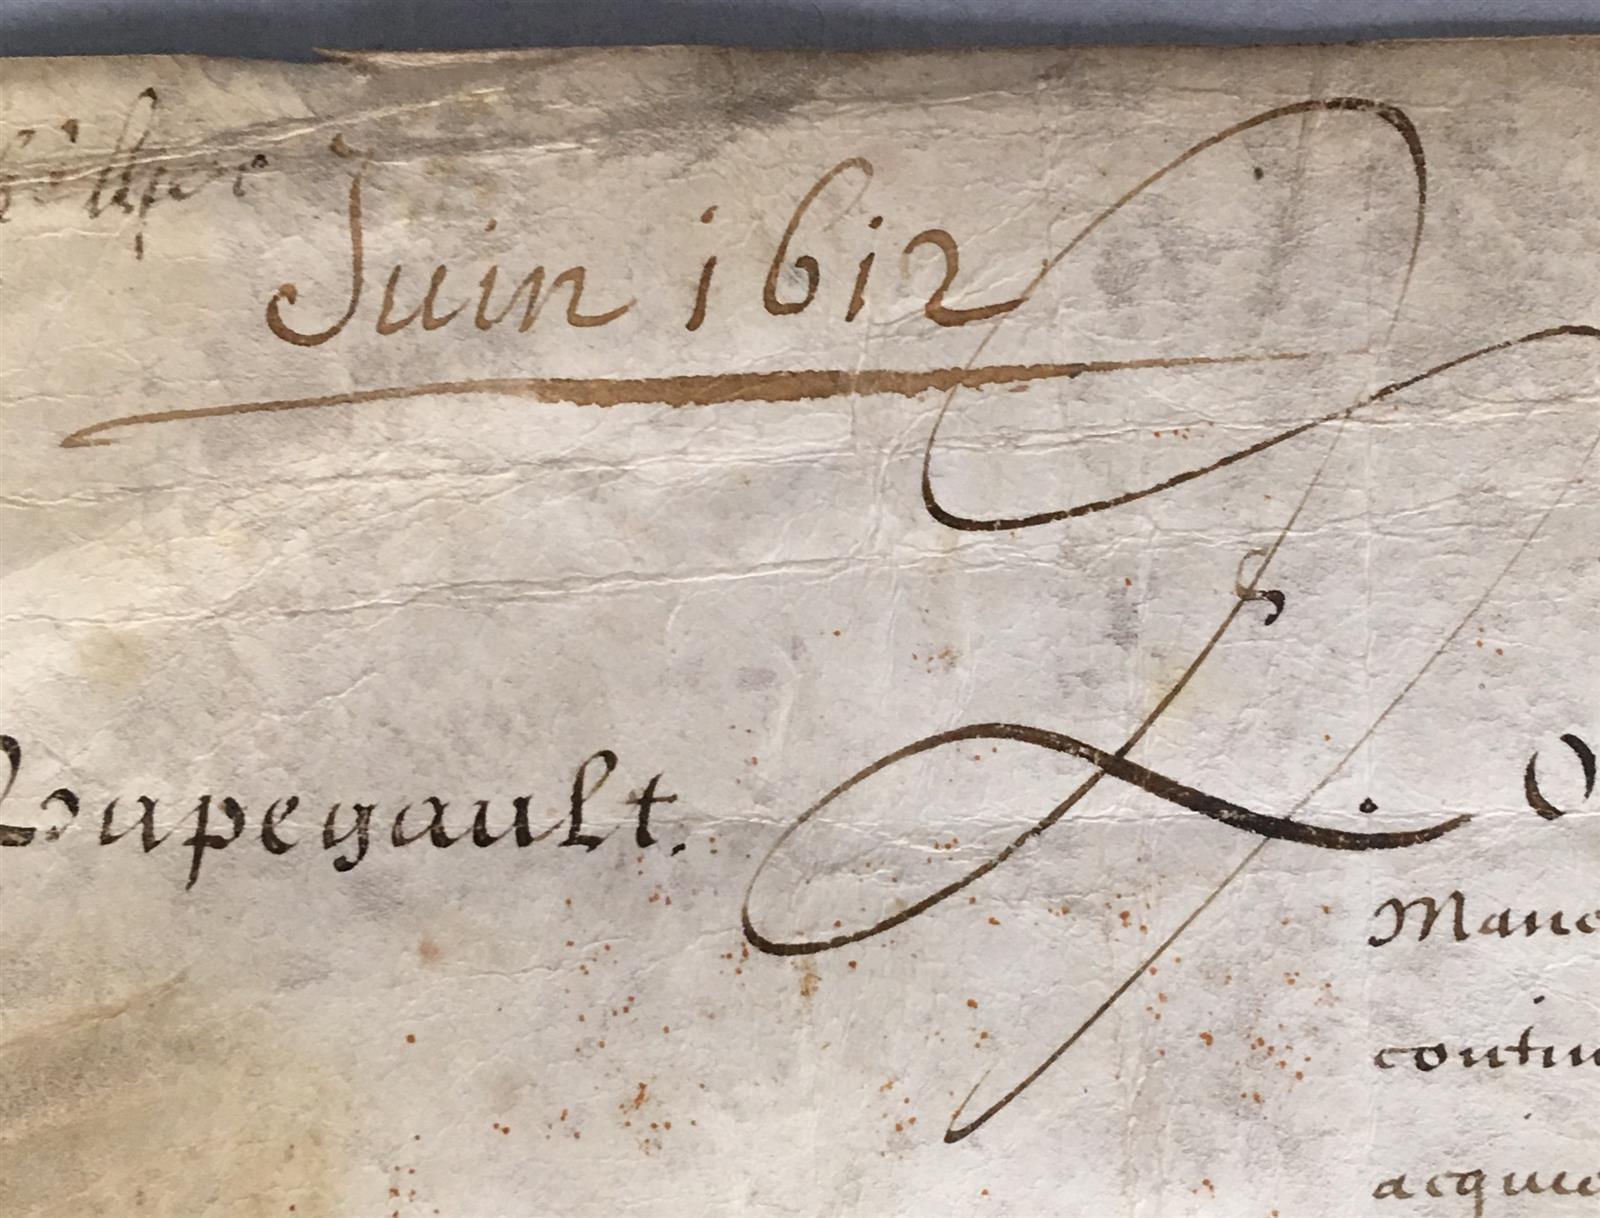 Juin 1612
Coupegault.
O
Mane
contin
acquie